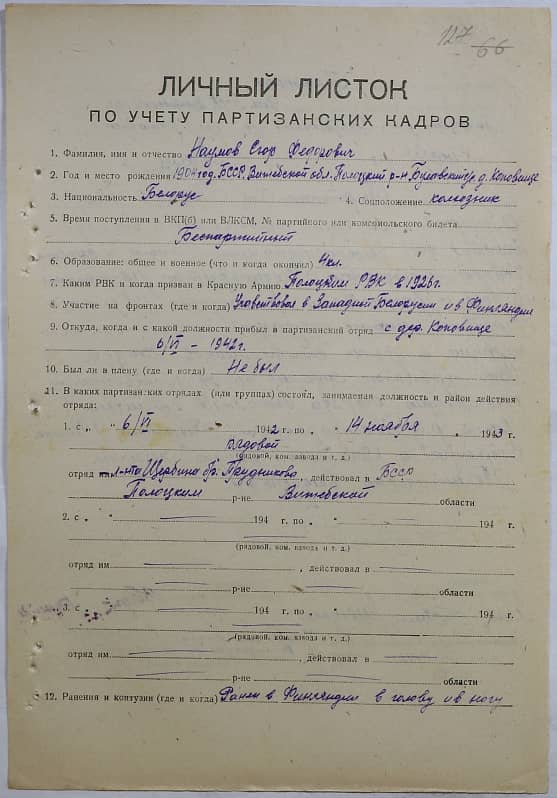 127
66
ЛИЧНЫЙ ЛИСТОК
ПО УЧЕТУ ПАРТИЗАНСКИХ КАДРОВ
1. Фамилия, имя и отчество Наумов Егор Федорович
2. Год и место рождения 1904 год. БССР, Витебской обл. Полоцкий р-н д. Коповище
3. Национальность Белорус 4. Соцположение колхозник
5. Время поступления в ВКП(б) или ВЛКСМ, № партийного или комсомольского билета
Беспартийный
6. Образование: общее и военное (что и когда окончил) 4 кл.
7. Каким РВК и когда призван в Красную Армию Полоцким РВК в 1926 г.
8. Участие на фронтах (где и когда) Участвовал в Западной Белоруссии и в Финляндии
9. Откуда, когда и с какой должности прибыл в партизанский отряд с дер. Коповище
6/VI - 1942 г.
10. Был ли в плену (где и когда) Не был
11. В каких партизанских отрядах (или группах) состоял, занимаемая должность и район действия
отряда:
1. с „ 6/VI 1942 г. по „ 14 ноября „ 1943 г.
рядовой
(рядовой, ком. взвода и т. д.)
отряд л-нта Щербина бр. Прудникова, действовал в БССР
Полоцким р-не Витебской области
2. с „ 194 г. по „ " 194 г.
(рядовой, ком. взвода и т. д.)
отряд им. , действовал в
р-не области
3. с 194 г. по „ " 194 г.
(рядовой, ком. взвода и т. д.)
отряд им. , действовал в
р-не области
12. Ранения и контузии (где и когда) Ранен в Финляндии в голову и в ногу